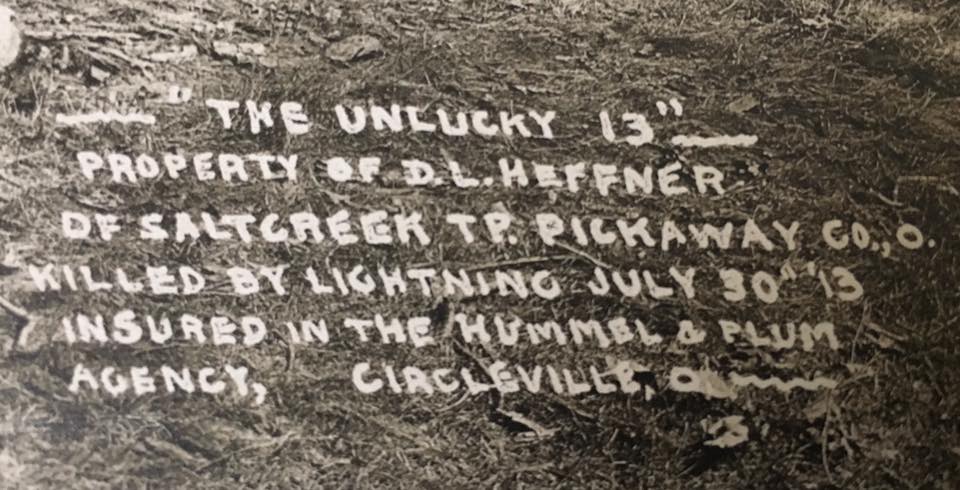 "THE UNLUCKY 13"
PROPERTY OF D.L. HEFFNER
OF SALTCREEK TP. PICKAWAY CO., O.
KILLED BY LIGHTNING JULY 30" '13
INSURED IN THE HUMMEL & PLUM
AGENCY, CIRCLEVILLE, O.